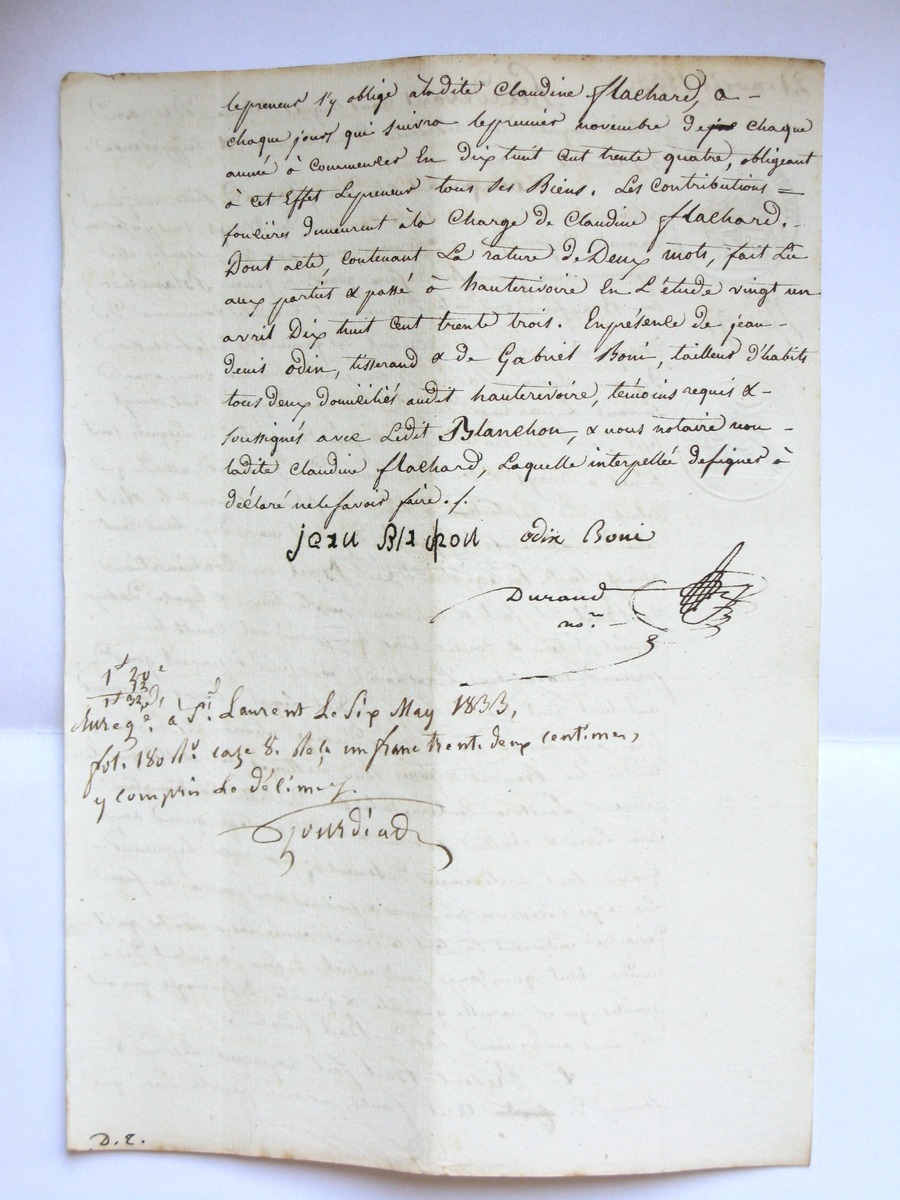 lepreneur s'y oblige àladite Claudine flachard, a -
chaque jours qui suivra lepremier novembre de chaque
année à Commencer En dix huit Cent trente quatre, obligeant
à cet Effet Lepreneur tous ses Biens. Les Contributions =
foncières demeurent àla Charge de Claudine flachard. -
Dont acte, Contenant La rature de Deux mots, fait Lu
aux parties & passé à hauterivoire En L'étude vingt un
avril Dix huit Cent trente trois. Enprésence de jean -
denis odin, tisserand & de Gabriel Boni, tailleur d'habits
tous deux domiciliés audit hauterivoire, témoins requis & -
soussignés avec Ledit Blanchon, & nous notaire non -
ladite Claudine flachard, Laquelle interpellée designer à
déclaré nelesavoir faire. /.
jean odin Boni
Durand
no.re
1f 20c
12
1f 32
Enregé. à St. Laurent Le Six May 1833,
fol. 180 Ro. case 8. Reçu un franc trente deux centimes,
y compris Le Décime.
D. E.